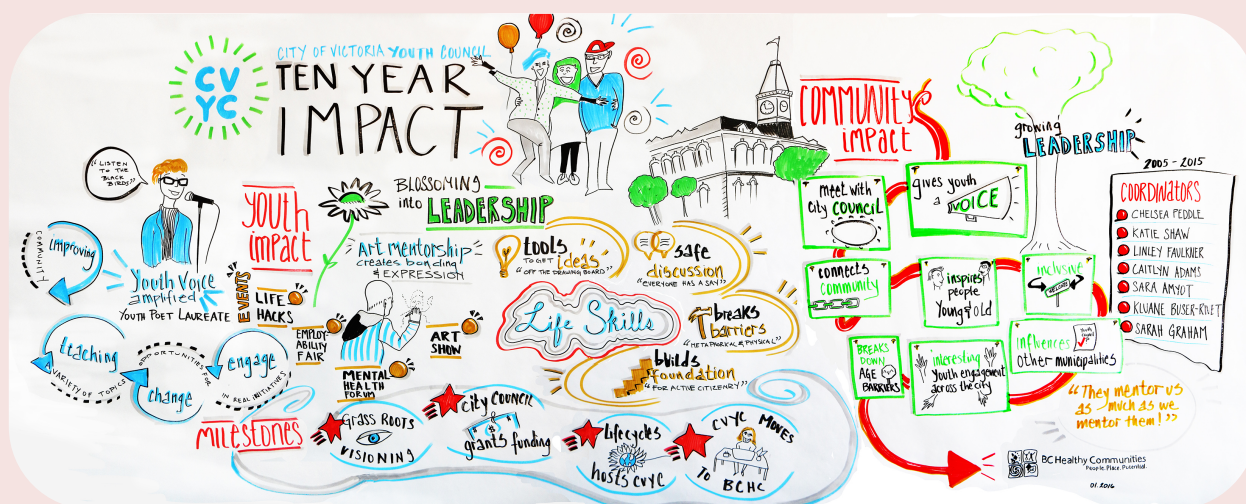 CV
YC
CITY OF VICTORIA YOUTH COUNCIL
TEN YEAR
IMPACT
"LISTEN
TO THE
BLACK
BIRDS"
Youth Voice
amplified
YOUTH POET LAUREATE
COMMUNITY
improving
teaching
A VARIETY OF TOPICS
OPPORTUNITIES FOR
change
engage
IN REAL INITIATIVES
Youth
impact
EVENTS
LIFE
HACKS
EMPLOY-
ABILITY
FAIR
MENTAL
HEALTH
FORUM
ART
SHOW
BLOSSOMING
into LEADERSHIP
Art mentorship
creates bonding
& EXPRESSION
tools
TO GET ideas
"OFF THE DRAWING BOARD"
safe
discussion
"EVERYONE HAS A SAY"
Life Skills
breaks
barriers
"METAPHORICAL & PHYSICAL"
builds
foundation
"FOR ACTIVE CITIZENRY"
MILESTONES
GRASS ROOTS
VISIONING
city COUNCIL
grants funding
Lifecycles
hosts CVYC
CVYC MOVES
TO BCHC
COMMUNITY
impact
meet with
city COUNCIL
gives youth
a VOICE
connects
community
inspires
people
Young & old
inclusive
WELCOME
BREAKS
DOWN
AGE
BARRIERS
interesting
youth engagement
across the city
influences
other municipalities
growing
LEADERSHIP
2005-2015
COORDINATORS
CHELSEA PEDDLE
KATIE SHAW
LINLEY FAULKNER
CAITLYN ADAMS
SARA AMYOT
KLUANE BUSER-RIVET
SARAH GRAHAM
"They mentor us
as much as we
mentor them!"
BC Healthy Communities
People. Place. Potential.
01.2016